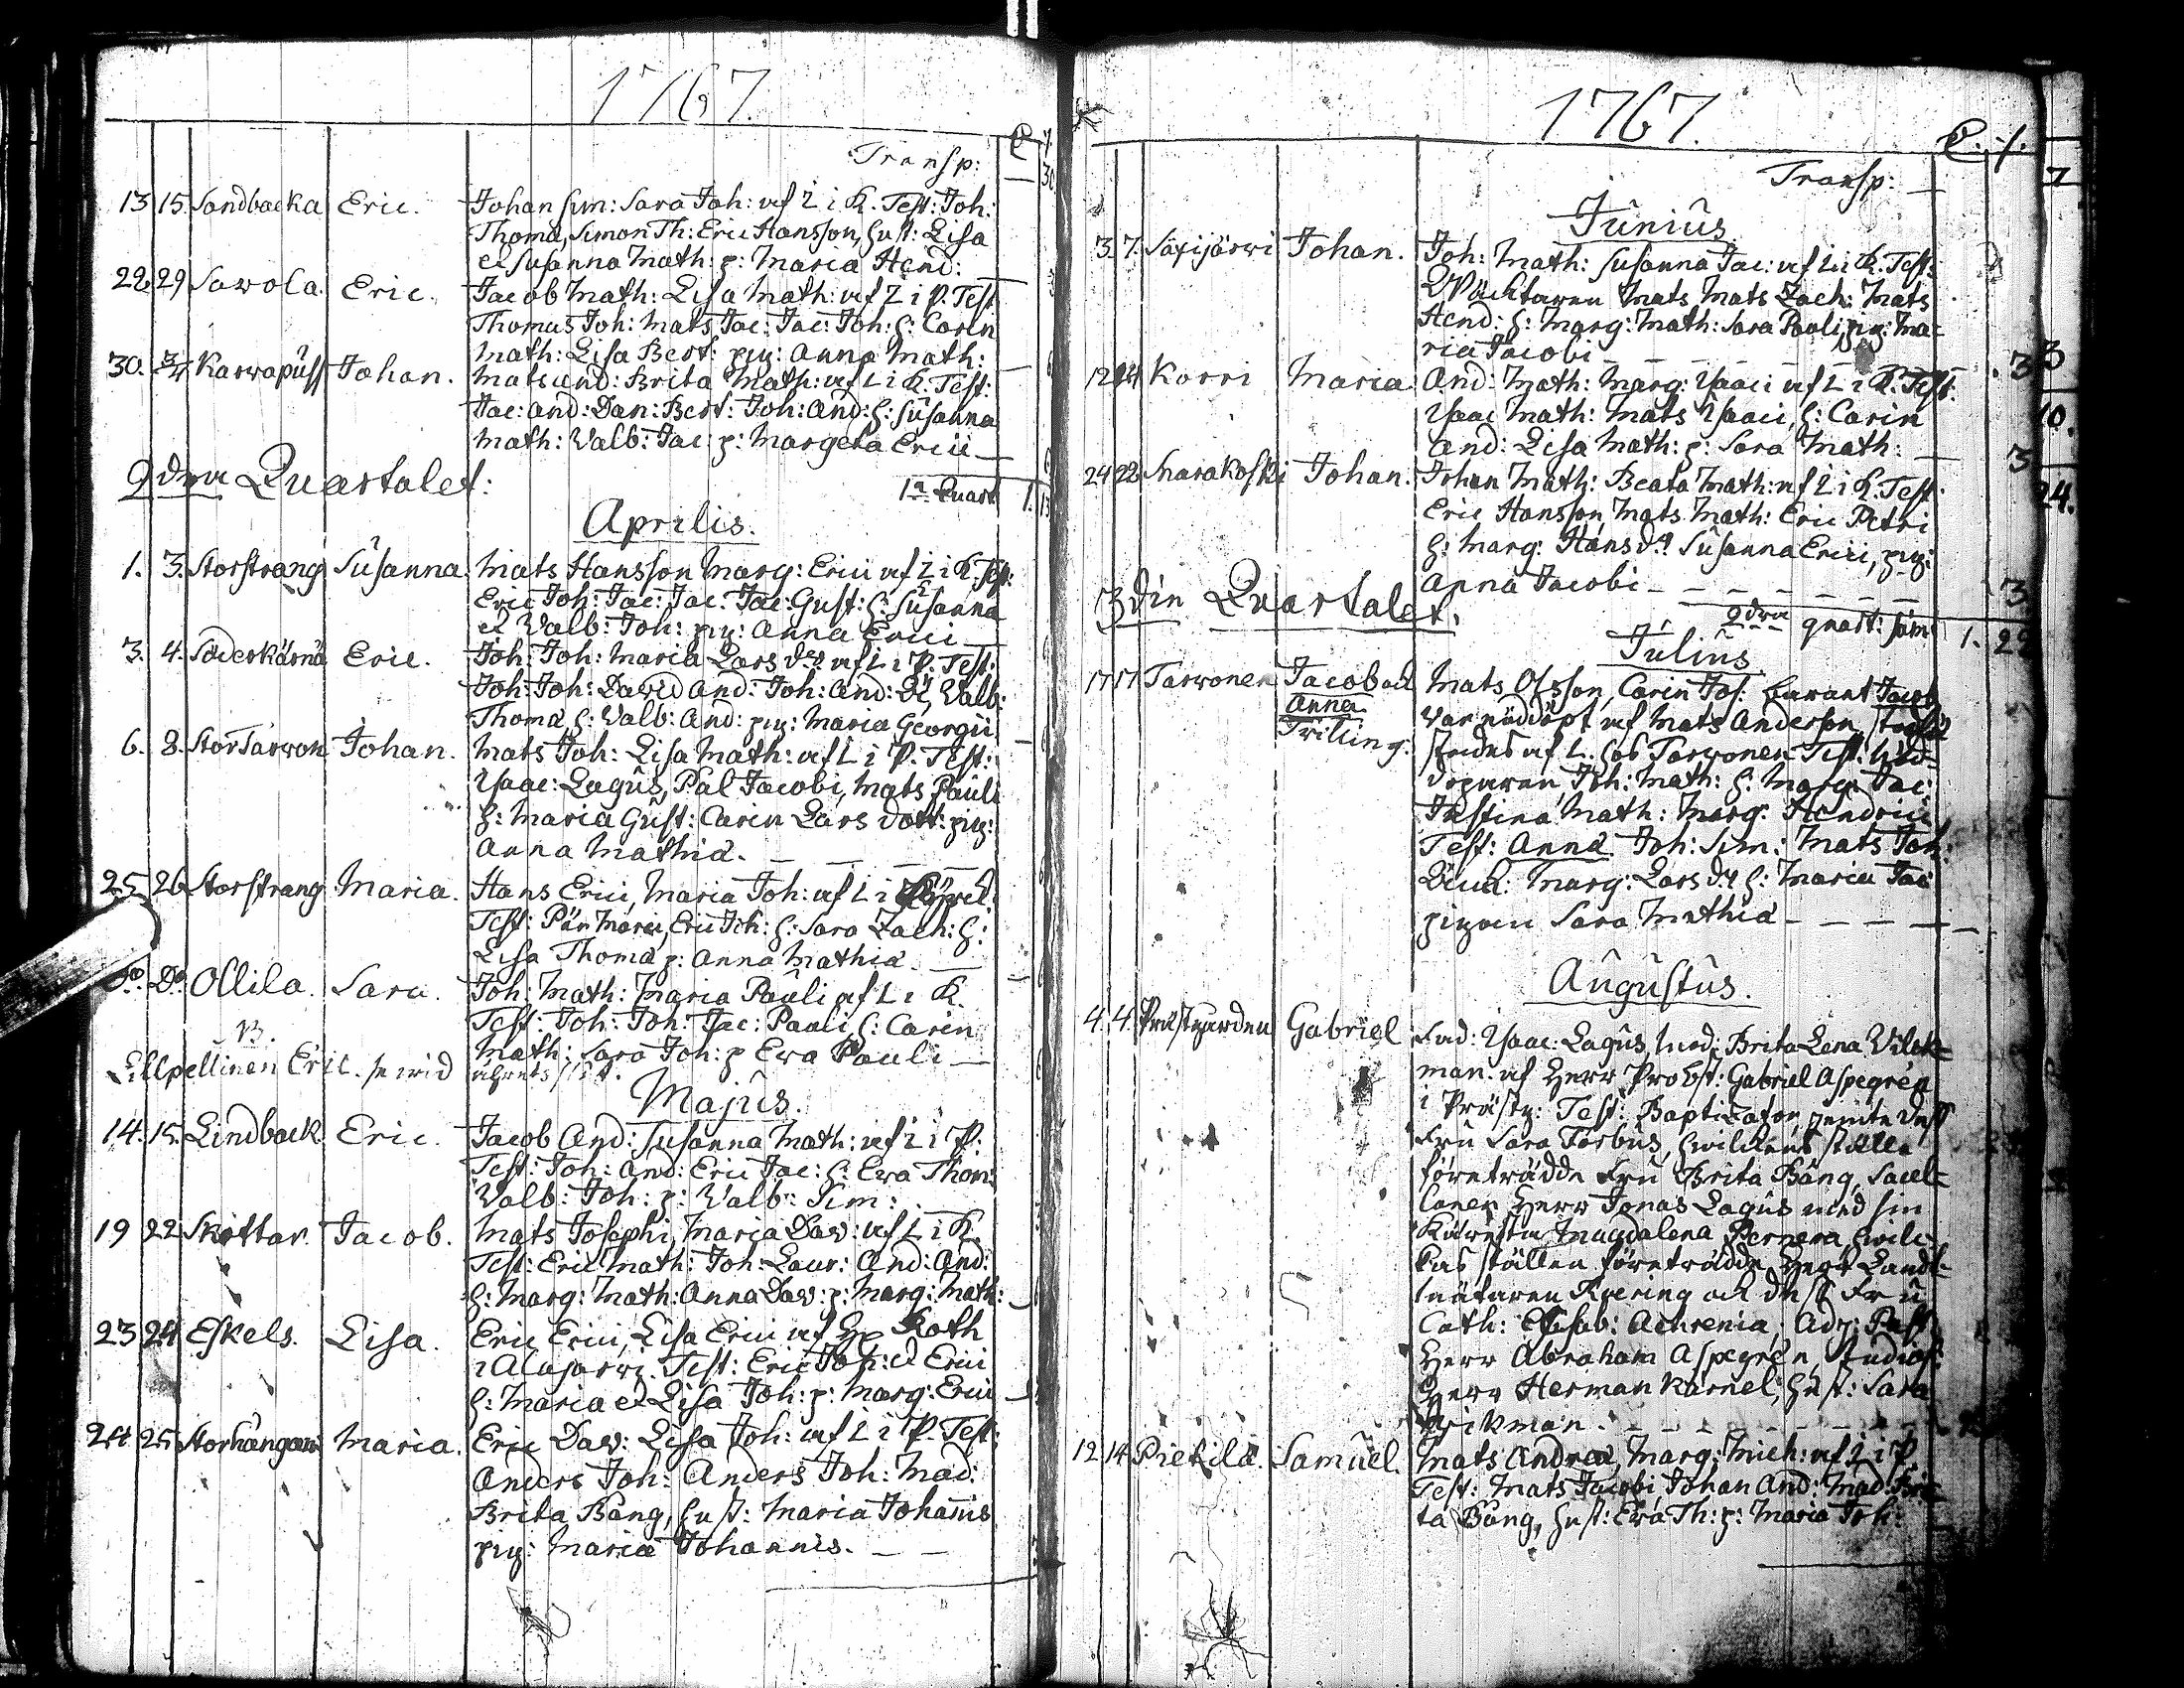 1767.
Transp: 30
13 15. Sandbacka Eric. Johan Sim: Sara Joh: af L i K. Test: Joh:
Thomæ, Simon Th: Eric Hansson, hust: Lisa
et Susanna Math: p: Maria Hend:
28 29 Sawola. Eric. Jacob Math: Lisa Math: af L i P. Test
Thomas Joh: Mats Jac: Jac: Joh: h: Carin
Math: Lisa Bert: pig: Anna Math:
30. Karvapuss Johan. Mats And: Brita Math: af L i K. Test:
Jac: And: Dan: Bert: Joh: And: h: Susanna
Math: Walb: Jac: p: Margeta Erici
1a Quart 1. 13
2dra Quartalet:
Aprilis.
1. 3. Storstrang Susanna. Mats Hansson Marg: Erici af L i K. Test:
Eric Joh: Jac: Jac: Jac: Gust: h: Susanna
et Walb: Joh: pig: Anna Erici
3. 4. Söderkårna Eric. Joh: Joh: Maria Larsdr af L i P. Test:
Joh: Joh: David And: Joh: And: Walb:
Thomæ, h: Walb: And: pig: Maria Georgii
6. 8. StorTarvon Johan. Mats Joh: Lisa Math: af L i P. Test:
Isaac: Lagus, Pål Jacobi, Mats Pauli
h: Maria Gust: Carin Lars dott: pig:
Anna Mathiæ.
25 26 Storstrang Maria. Hans Erici, Maria Joh: af L i
Test: Eric Joh: h: Sara Zach: h:
Lisa Thomæ p: Anna Mathiæ.
Do. Do Ollila. Sara. Joh: Math: Maria Pauli af L i K.
Test: Joh: Joh: Jac: Pauli, h: Carin
Math: Sara Joh: p Ewa Pauli
NB.
Lillpellinen Eric. se wid
Majus.
14. 15. Lindback Eric. Jacob And: Susanna Math: af L i P.
Test: Joh: And: Eric Jac: h: Ewa Thom:
Walb: Joh: p: Walb: Sim:
19 22 Skyttar. Jacob. Mats Josephi, Maria Daw: af L i K.
Test: Eric Math: Joh: Laur: And: And:
h: Marg: Math: Anna Daw: p: Marg: Math:
23 24 Eskels. Lisa. Eric Erici, Lisa Erici af Hr Roth
i Alajarwi. Test: Eric Joh: et Erici
h: Maria et Lisa Joh: p: Marg: Erici
24 25 Storhångan Maria. Eric Daw: Lisa Joh: af L i P. Test:
Anders Joh: Anders Joh: Mad:
Brita Bång, hust: Maria Johannis
pig: Maria Johannis.
1767.
Transp:
Junius.
3. 7. Säxijärwi Johan. Joh: Math: Susanna Jac: af L i K. Test:
Mats Mats Zach: Mats
Hend: h: Marg: Math: Sara Pauli, pig: Ma=
ria Jacobi 3
12 14 Korri Maria And: Math: Marg: Isaaci af L i K. Test.
Isaac Math: Mats Isaaci, h: Carin
And: Lisa Math: p: Sara Math: 3
24 28 Marakoski Johan. Johan Math: Beata Math: af L i K. Test.
Eric Hansson, Mats Math: Eric Petri
h: Marg: Hansdr. Susanna Erici, pig:
Anna Jacobi 3
2dra quart: sum 1. 22
3din Quartalet.
Julius
17 17 Tarvonen Jacob och Mats Olsson, Carin Jos: barnet Jacob
Anna War nöddöpt af Mats Andersson,
Trilling. af L. hos Tarvonen Test:
Joh: Math: h: Marg: Jac:
Justina Math: Marg: Hendrici
Test: Anna Joh: Sim: Mats Joh:
Marg: Larsdr h: Maria Jac
pigan Sara Mathiæ
Augustus.
4. 4. Prästgården Gabriel Fad: Isaac: Lagus, Mod: Brita Lena Wilck=
man. af Herr Probst: Gabriel Aspegrén
i Prästg: Test: Baptizator, jemte dess
Fru Sara Forbus, hwilckens ställe
företrädde Fru Brita Bång, Sacel=
lanen Herr Jonas Lagus med sin
Käresta Magdalena Pernera, hwilc=
kas ställen företrädde Herr Landt=
mätaren Kjering och dess Fru
Cath: Elisab: Achrenia, Adj: Past
Herr Abraham Aspegrén, Studios:
Herr Herman Karnel, hust: Sara
Wikman.
12 14 Pietilä. Samuel. Mats Andreæ, Marg: Mich: af L i P.
Test: Mats Jacobi Johan And: Mad: Bri=
ta Bång, hust: Ewa Th: p: Maria Joh: